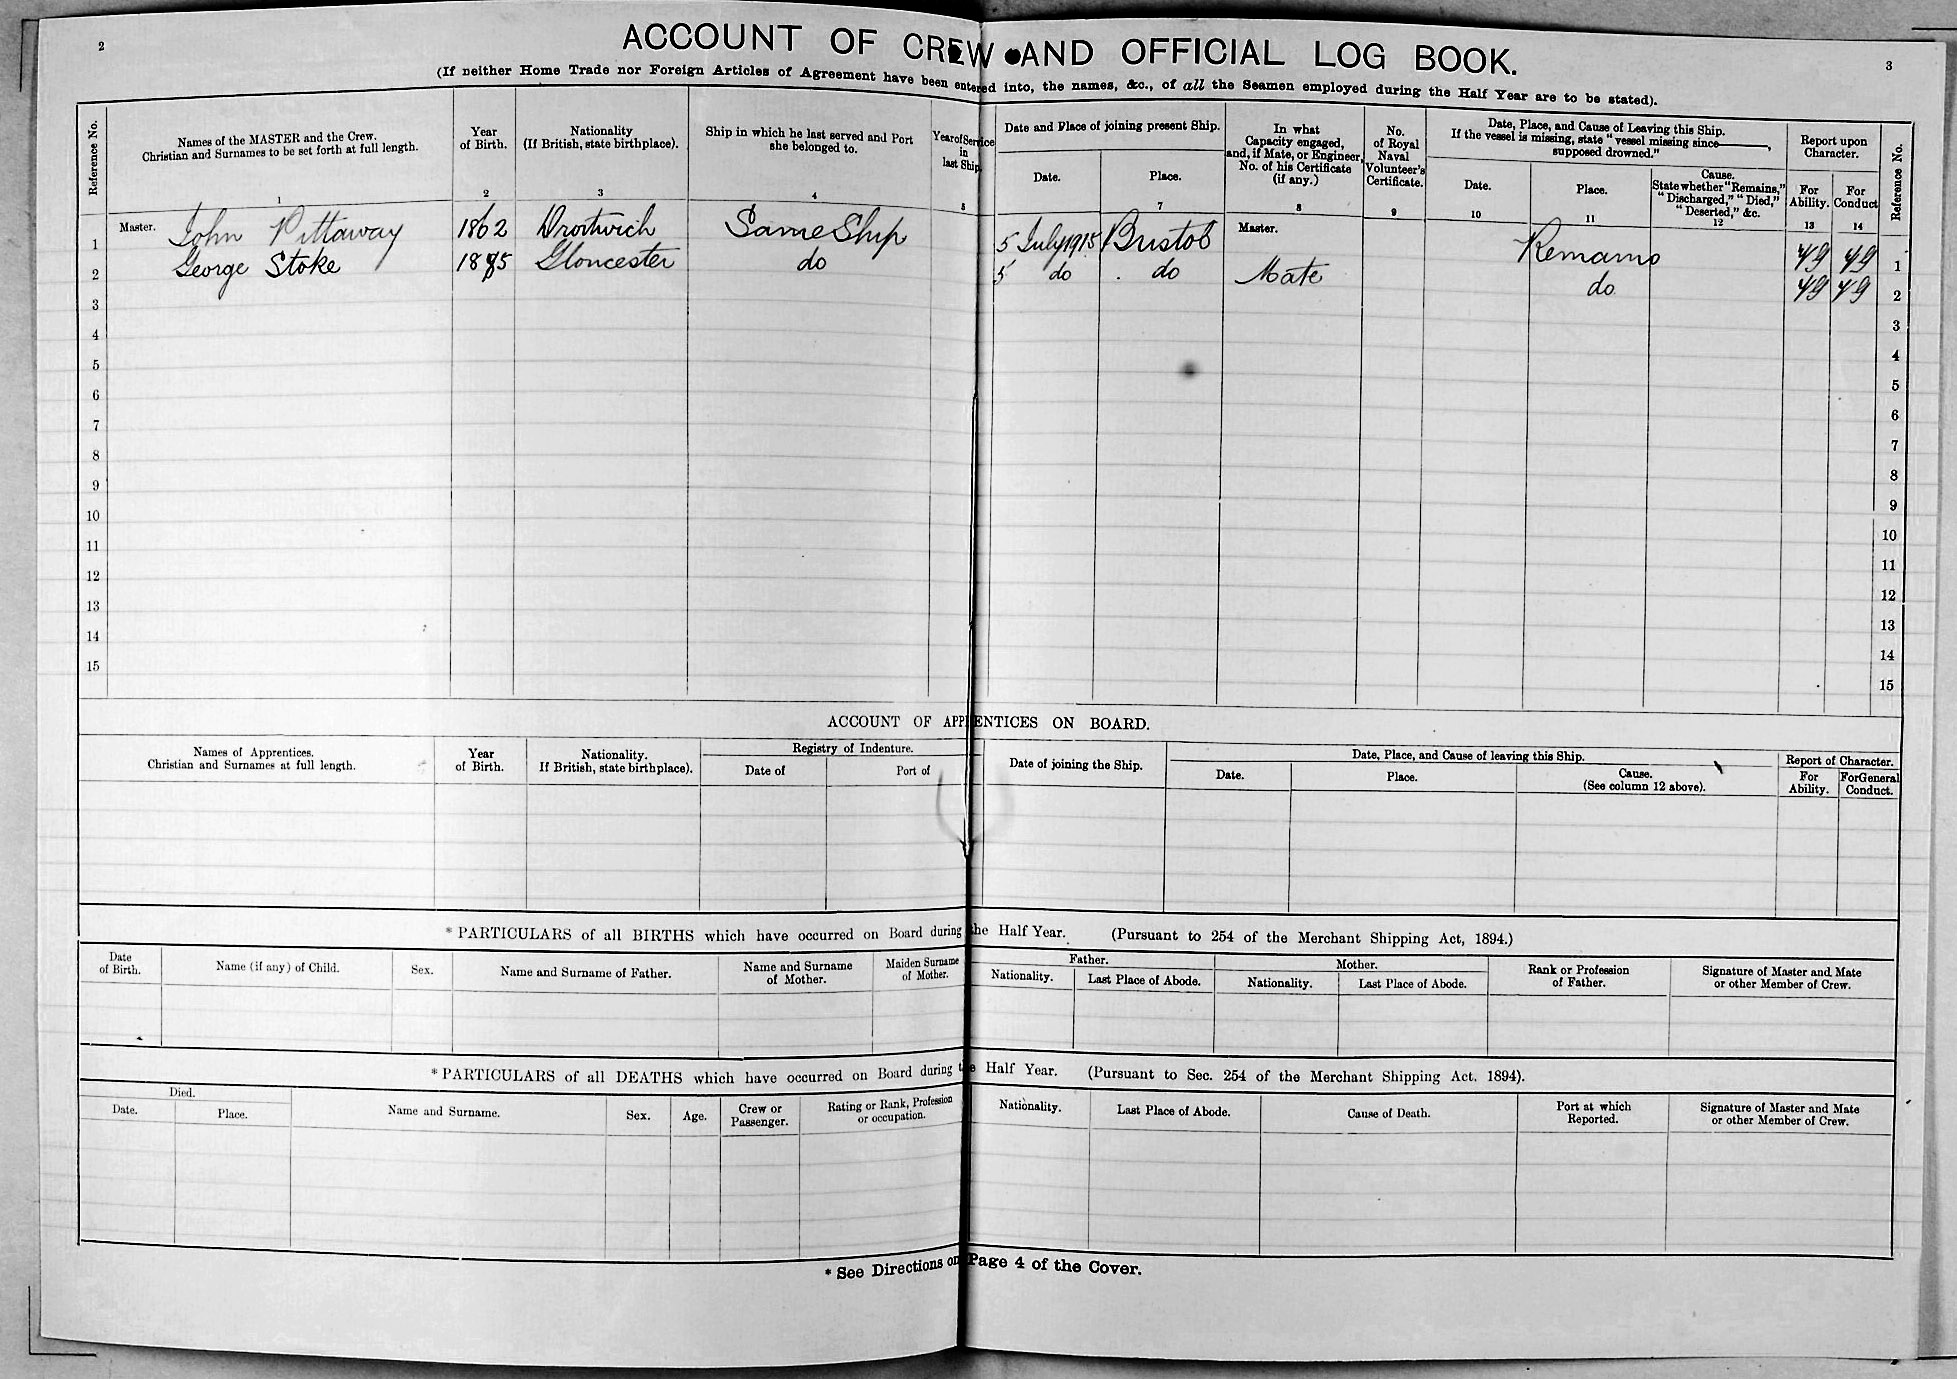 2
ACCOUNT OF CREW AND OFFICIAL LOG BOOK.
3
(If neither Home Trade nor Foreign Articles of Agreement have been entered into, the names, &c., of all the Seamen employed during the Half Year are to be stated).
Reference No.
Names of the MASTER and the Crew.
Christian and Surnames to be set forth at full length.
1
Year
of Birth.
2
Nationality
(If British, state birthplace).
3
Ship in which he last served and Port
she belonged to.
4
Year of Service
in
last Ship.
5
Date and Place of joining present Ship.
Date.
Place.
7
In what
Capacity engaged,
and, if Mate, or Engineer,
No. of his Certificate
(if any.)
8
No.
of Royal
Naval
Volunteer's
Certificate.
9
Date, Place, and Cause of Leaving this Ship.
If the vessel is missing, state "vessel missing since———,
supposed drowned."
Date.
10
Place.
11
Cause.
State whether "Remains,"
"Discharged," "Died,"
"Deserted," &c.
12
Report upon
Character.
For
Ability.
13
For
Conduct
14
Reference No.
1 Master. John Pittaway 1862 Droitwich Same Ship 5 July 1915 Bristol Master. Remains VG VG 1
2 George Stoke 1885 Gloucester do 5 do do Mate do VG VG 2
3 3
4 4
5 5
6 6
7 7
8 8
9 9
10 10
11 11
12 12
13 13
14 14
15 15
ACCOUNT OF APPRENTICES ON BOARD.
Names of Apprentices.
Christian and Surnames at full length.
Year
of Birth.
Nationality.
If British, state birthplace).
Registry of Indenture.
Date of
Port of
Date of joining the Ship.
Date, Place, and Cause of leaving this Ship.
Date.
Place.
Cause.
(See column 12 above).
Report of Character.
For
Ability.
For General
Conduct.
* PARTICULARS of all BIRTHS which have occurred on Board during the Half Year. (Pursuant to 254 of the Merchant Shipping Act, 1894.)
Date
of Birth.
Name (if any) of Child.
Sex.
Name and Surname of Father.
Name and Surname
of Mother.
Maiden Surname
of Mother.
Father.
Nationality.
Last Place of Abode.
Mother.
Nationality.
Last Place of Abode.
Rank or Profession
of Father.
Signature of Master and Mate
or other Member of Crew.
* PARTICULARS of all DEATHS which have occurred on Board during the Half Year. (Pursuant to Sec. 254 of the Merchant Shipping Act. 1894).
Died.
Date.
Place.
Name and Surname.
Sex.
Age.
Crew or
Passenger.
Rating or Rank, Profession
or occupation.
Nationality.
Last Place of Abode.
Cause of Death.
Port at which
Reported.
Signature of Master and Mate
or other Member of Crew.
* See Directions on Page 4 of the Cover.